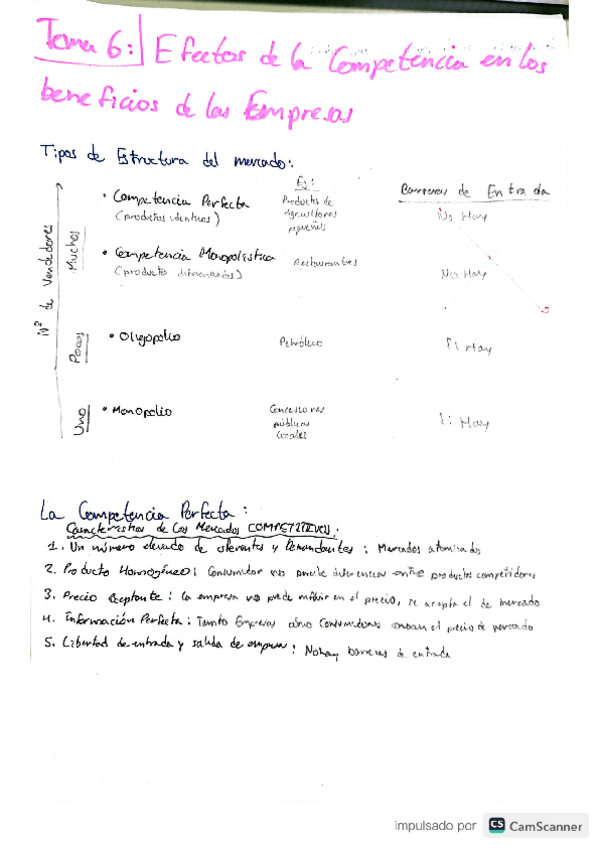 Tema 6: Efectos de la Competencia en los
beneficios de las Empresas
Tipos de Estructura del mercado:
Ej:
Barreras de Entrada
Nº de Vendedores
Muchos
• Competencia Perfecta
(productos identicos)
Productos de
Agricultores
pequeños
No Hay
• Competencia Monopolistica
(producto diferenciados)
Restaurantes
No Hay
Pocos
• Oligopolio
Petróleo
Si Hay
Uno
• Monopolio
públicas
locales
Si Hay
La Competencia Perfecta:
Caracteristicas de los Mercados COMPETITIVOS:
1. Un número elevado de oferentes y Demandantes: Mercados atomizados
2. Producto Homogéneo: Consumidor no puede diferenciar entre productos competidores
3. Precio Aceptante: la empresa no puede influir en el precio, se acepta el de mercado
4. Información Perfecta: Tanto Empresas como Consumidores conocen el precio de mercado
5. Libertad de entrada y salida de empresas: No hay barreras de entrada
impulsado por CS CamScanner